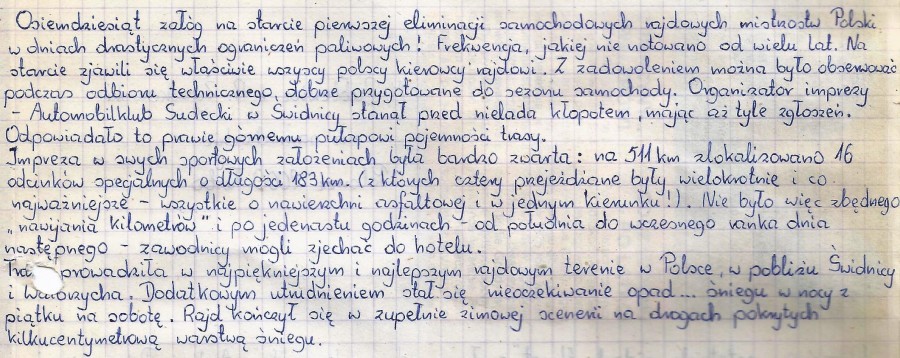 Osiemdziesiąt załóg na starcie pierwszej eliminacji samochodowych rajdowych mistrzostw Polski
w dniach drastycznych ograniczeń paliwowych! Frekwencja, jakiej nie notowano od wielu lat. Na
starcie zjawili się właściwie wszyscy polscy kierowcy rajdowi. Z zadowoleniem można było obserwować
podczas odbioru technicznego, dobrze przygotowane do sezonu samochody. Organizator imprezy
- Automobilklub Sudecki w Świdnicy stanął przed nielada kłopotem, mając aż tyle zgłoszeń.
Odpowiadało to prawie górnemu pułapowi pojemności trasy.
Impreza w swych sportowych założeniach była bardzo zwarta: na 511 km zlokalizowano 16
odcinków specjalnych o długości 183 km. (z których cztery przejeżdżane były wielokrotnie i co
najważniejsze - wszystkie o nawierzchni asfaltowej i w jednym kierunku!). Nie było więc zbędnego
„nawijania kilometrów" i po jedenastu godzinach - od południa do wczesnego ranka dnia
następnego - zawodnicy mogli zjechać do hotelu.
prowadziła w najpiękniejszym i najlepszym rajdowym terenie w Polsce, w pobliżu Świdnicy
i Wałbrzycha. Dodatkowym utrudnieniem stał się nieoczekiwanie opad... śniegu w nocy z
piątku na sobotę. Rajd kończył się w zupełnie zimowej scenerii na drogach pokrytych
kilkucentymetrową warstwą śniegu.